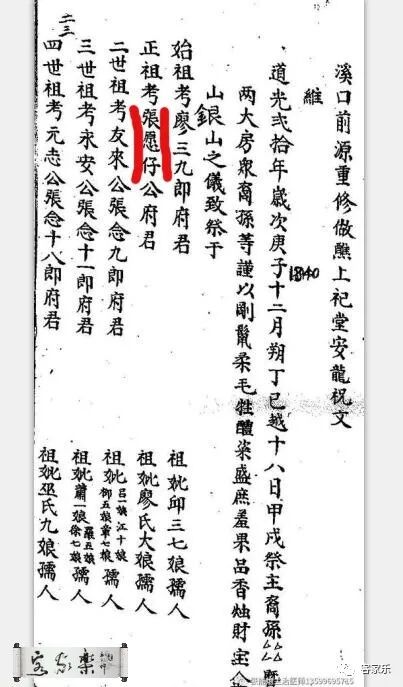 溪口前源重修做醮上祀堂安龍祝文
維
道光弍拾年歲次庚子十二月朔丁巳越十八日甲戌祭主裔孫厶厶暨
1840
两大房衆裔孫等謹以剛鬣柔毛牲醴粢盛庶羞果品香燭財宝
山銀山之儀致祭于
始祖考廖三九郎府君 祖妣邱三七娘孺人
正祖考張愿仔公府君 祖妣廖氏大娘孺人
二世祖考友來公張念九郎府君 祖妣 呂一娘 江十娘 柳五娘 章七娘 孺人
三世祖考永安公張念十一郎府君 祖妣 蕭一娘 羅五娘 徐七娘 孺人
四世祖考元志公張念十八郎府君 祖妣巫氏九娘孺人
二三
客家樂
客家乐